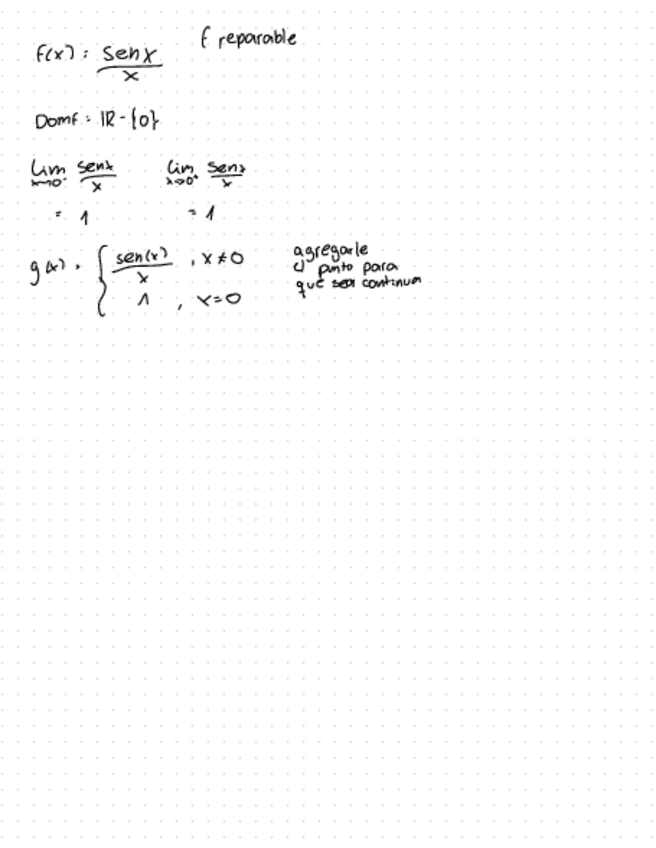 f(x) = sen x / x
f reparable
Domf = IR - {0}
lim x→0⁻ senx / x
lim x→0⁺ senx / x
= 1
= 1
g(x) = { sen(x) / x , x ≠ 0
1 , x = 0
agregarle
el punto para
que sea continua